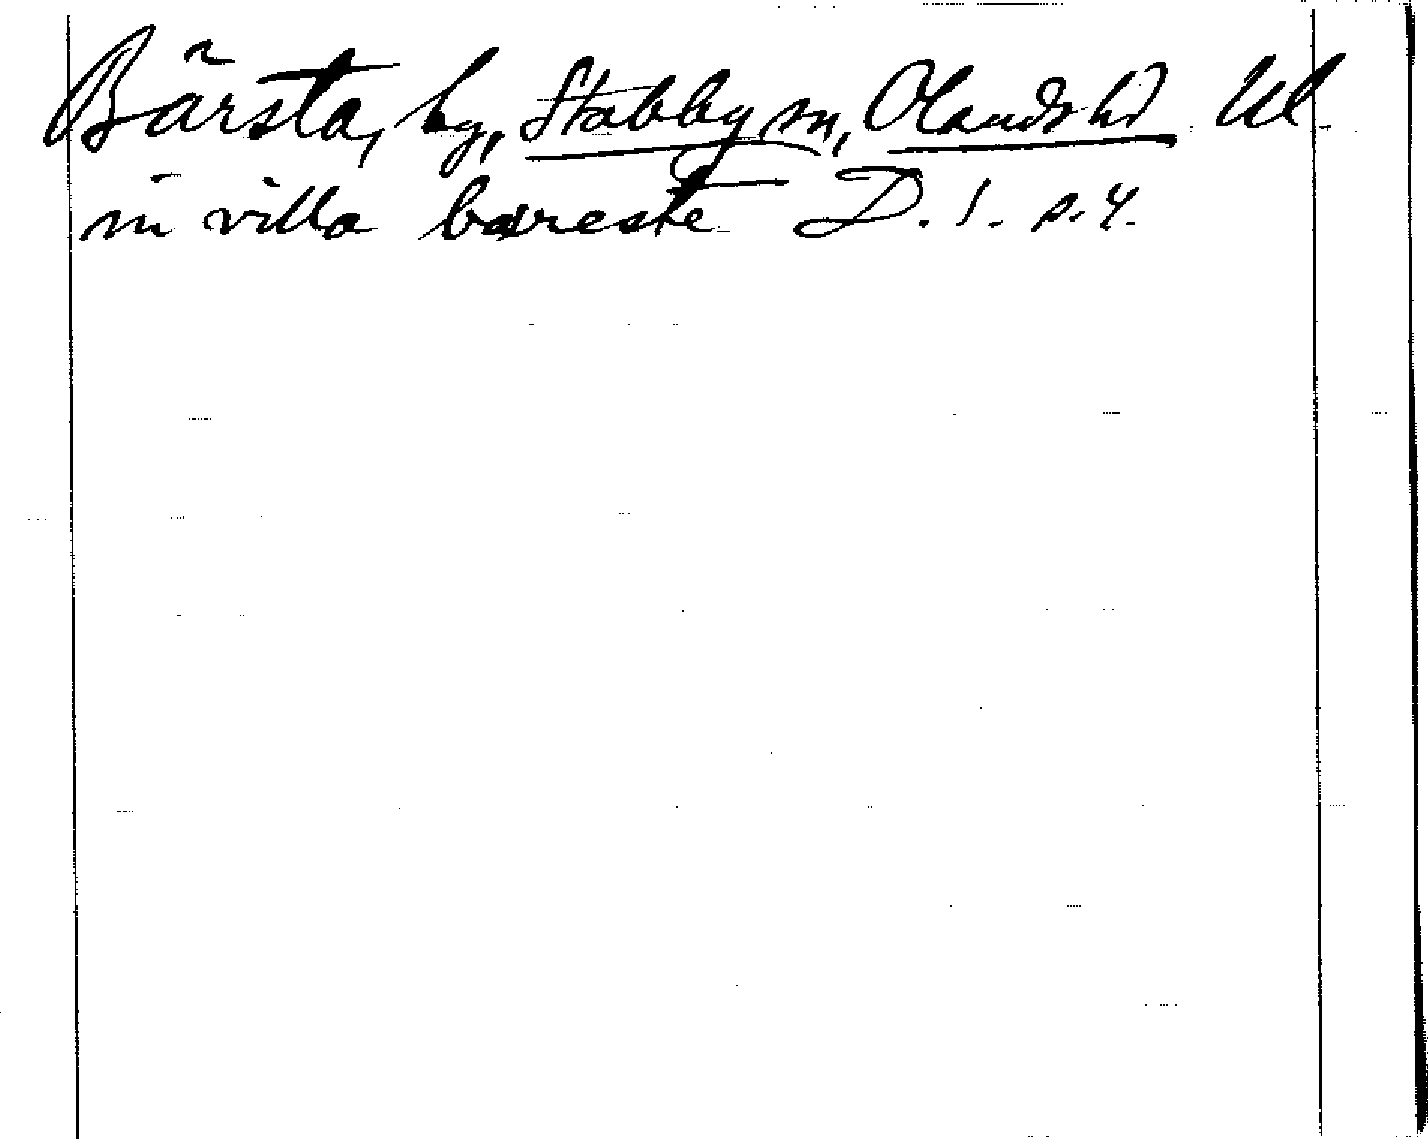 Bärsta, by, Stabby sn, Olands hd Ul.
in villa bæreste D. 1. s. 4.